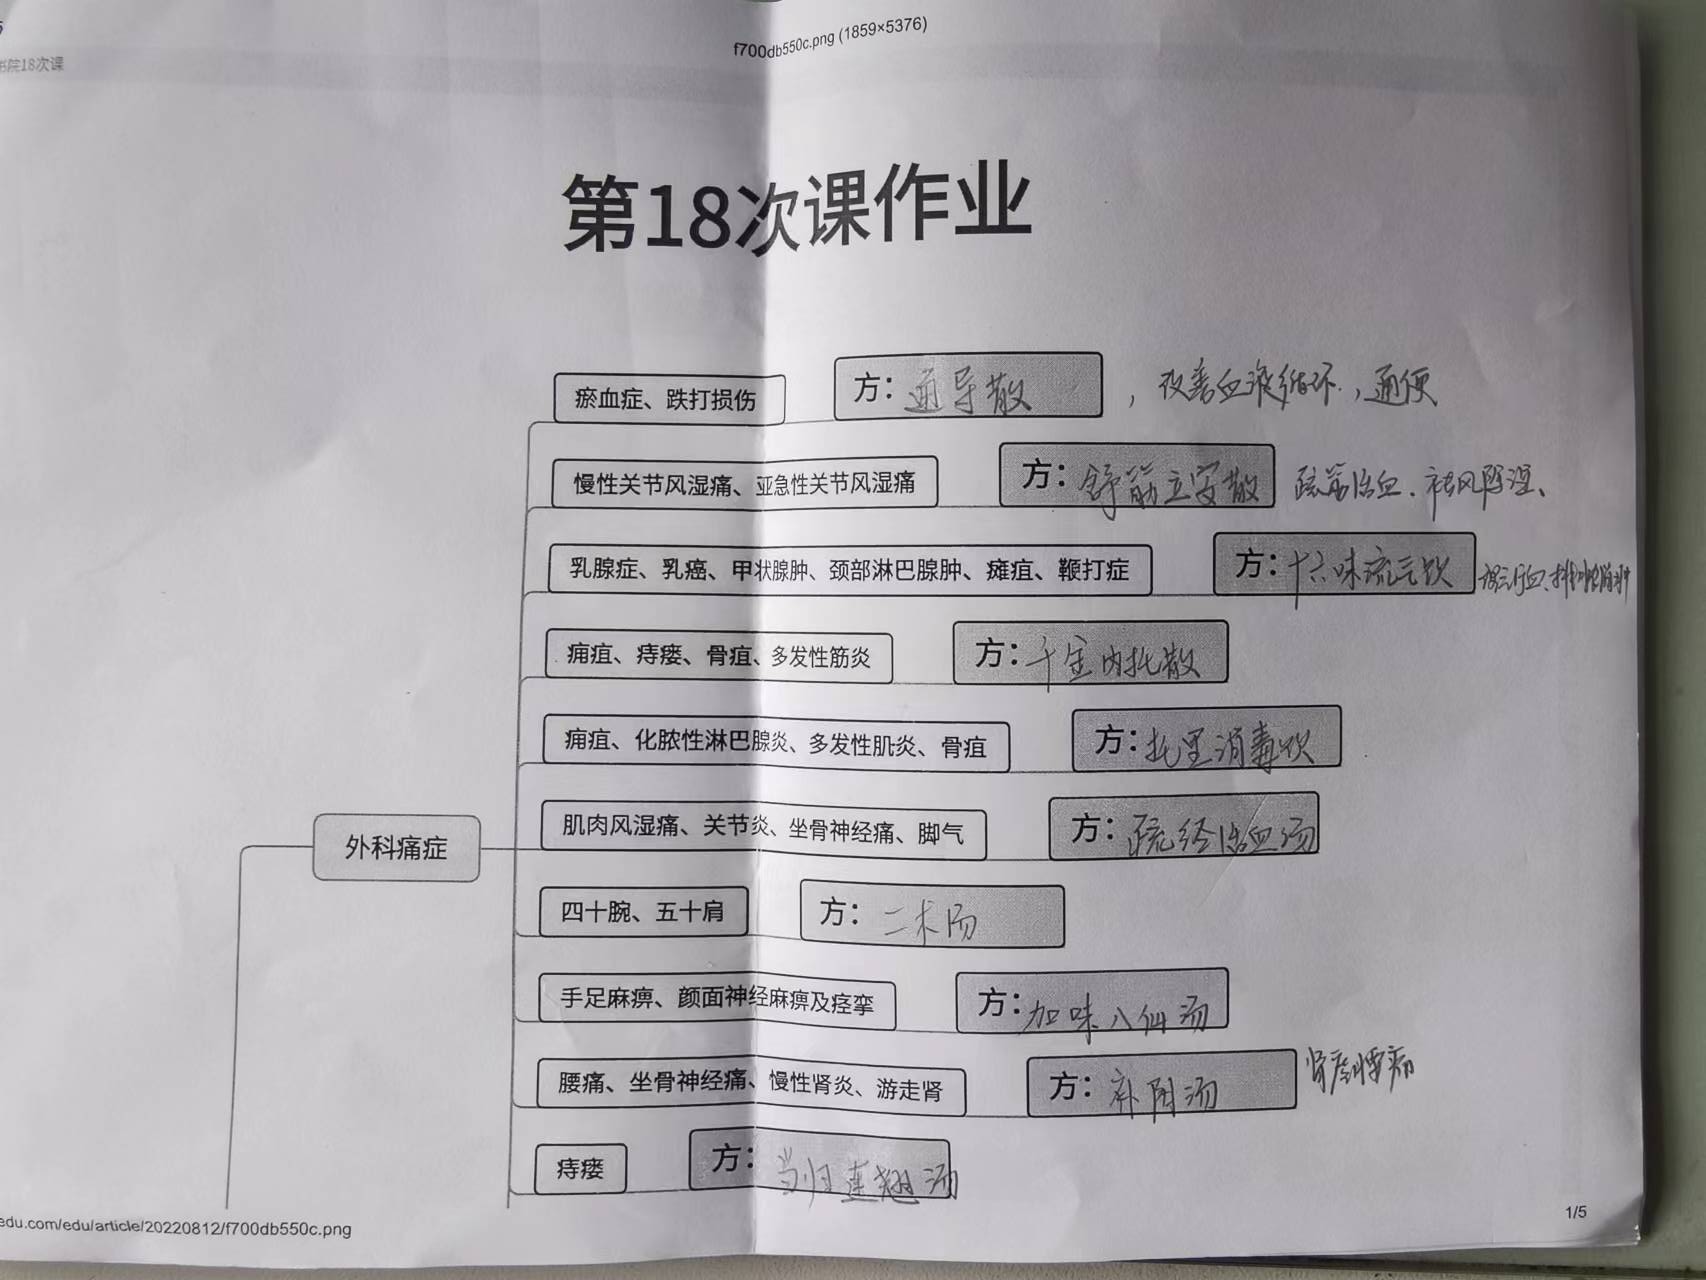 f700db550c.png (1859×5376)
书院18次课
第18次课作业
瘀血症、跌打损伤 方：通导散 ，改善血液循环，通便
慢性关节风湿痛、亚急性关节风湿痛 方：舒筋立安散 疏筋活血、祛风除湿、
乳腺症、乳癌、甲状腺肿、颈部淋巴腺肿、瘫疽、鞭打症 方：十六味流气饮
痈疽、痔瘘、骨疽、多发性筋炎 方：千金内托散
痈疽、化脓性淋巴腺炎、多发性肌炎、骨疽 方：托里消毒饮
肌肉风湿痛、关节炎、坐骨神经痛、脚气 方：疏经活血汤
外科痛症
四十腕、五十肩 方：二术汤
手足麻痹、颜面神经麻痹及痉挛 方：加味八仙汤
腰痛、坐骨神经痛、慢性肾炎、游走肾 方：补阴汤 肾虚腰痛
痔瘘 方：当归连翘汤
edu.com/edu/article/20220812/f700db550c.png
1/5